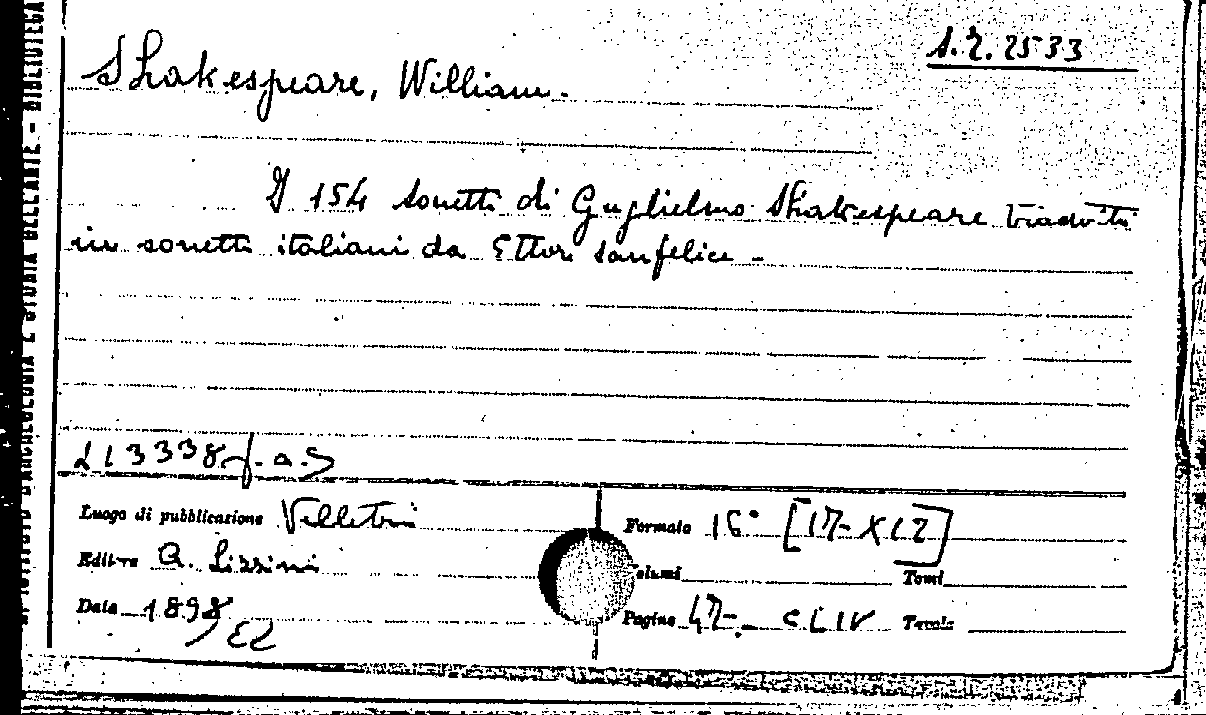 S.R. 2533
Shakespeare, William.
I 154 sonetti di Guglielmo Shakespeare tradotti
in sonetti italiani da Ettore Sanfelice -
113338
Luogo di pubblicazione Velletri
Formato 16°
Editore Lizzini
Volumi Tomi
Data 1898
Pagine 47- CLIV Tavole
D'ARCHEOLOGIA E STORIA DELL'ARTE - BIBLIOTECA